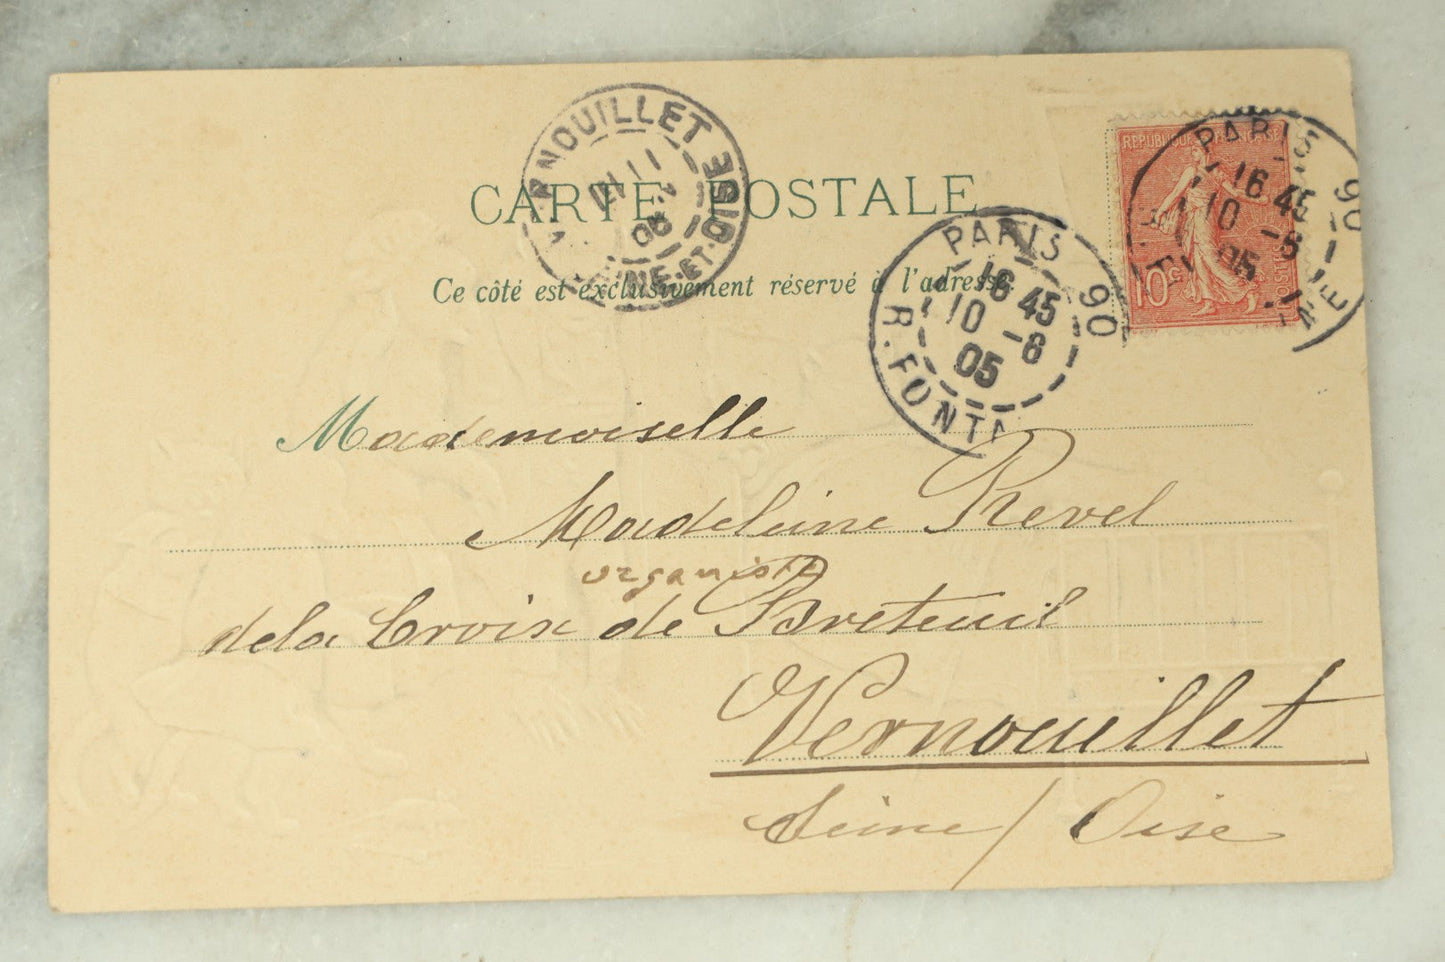 CARTE POSTALE
Ce côté est exclusivement réservé à l'adresse.
RÉPUBLIQUE
10c
PARIS 90
16 45
10 -6
05
NE
PARIS 90
16 45
10 -6
05
R. FONTA
RNOUILLET
11
05
SEINE-ET-OISE
Mademoiselle
Madeleine Revel
organiste
de la Croix de Breteuil
Vernouillet
Seine / Oise